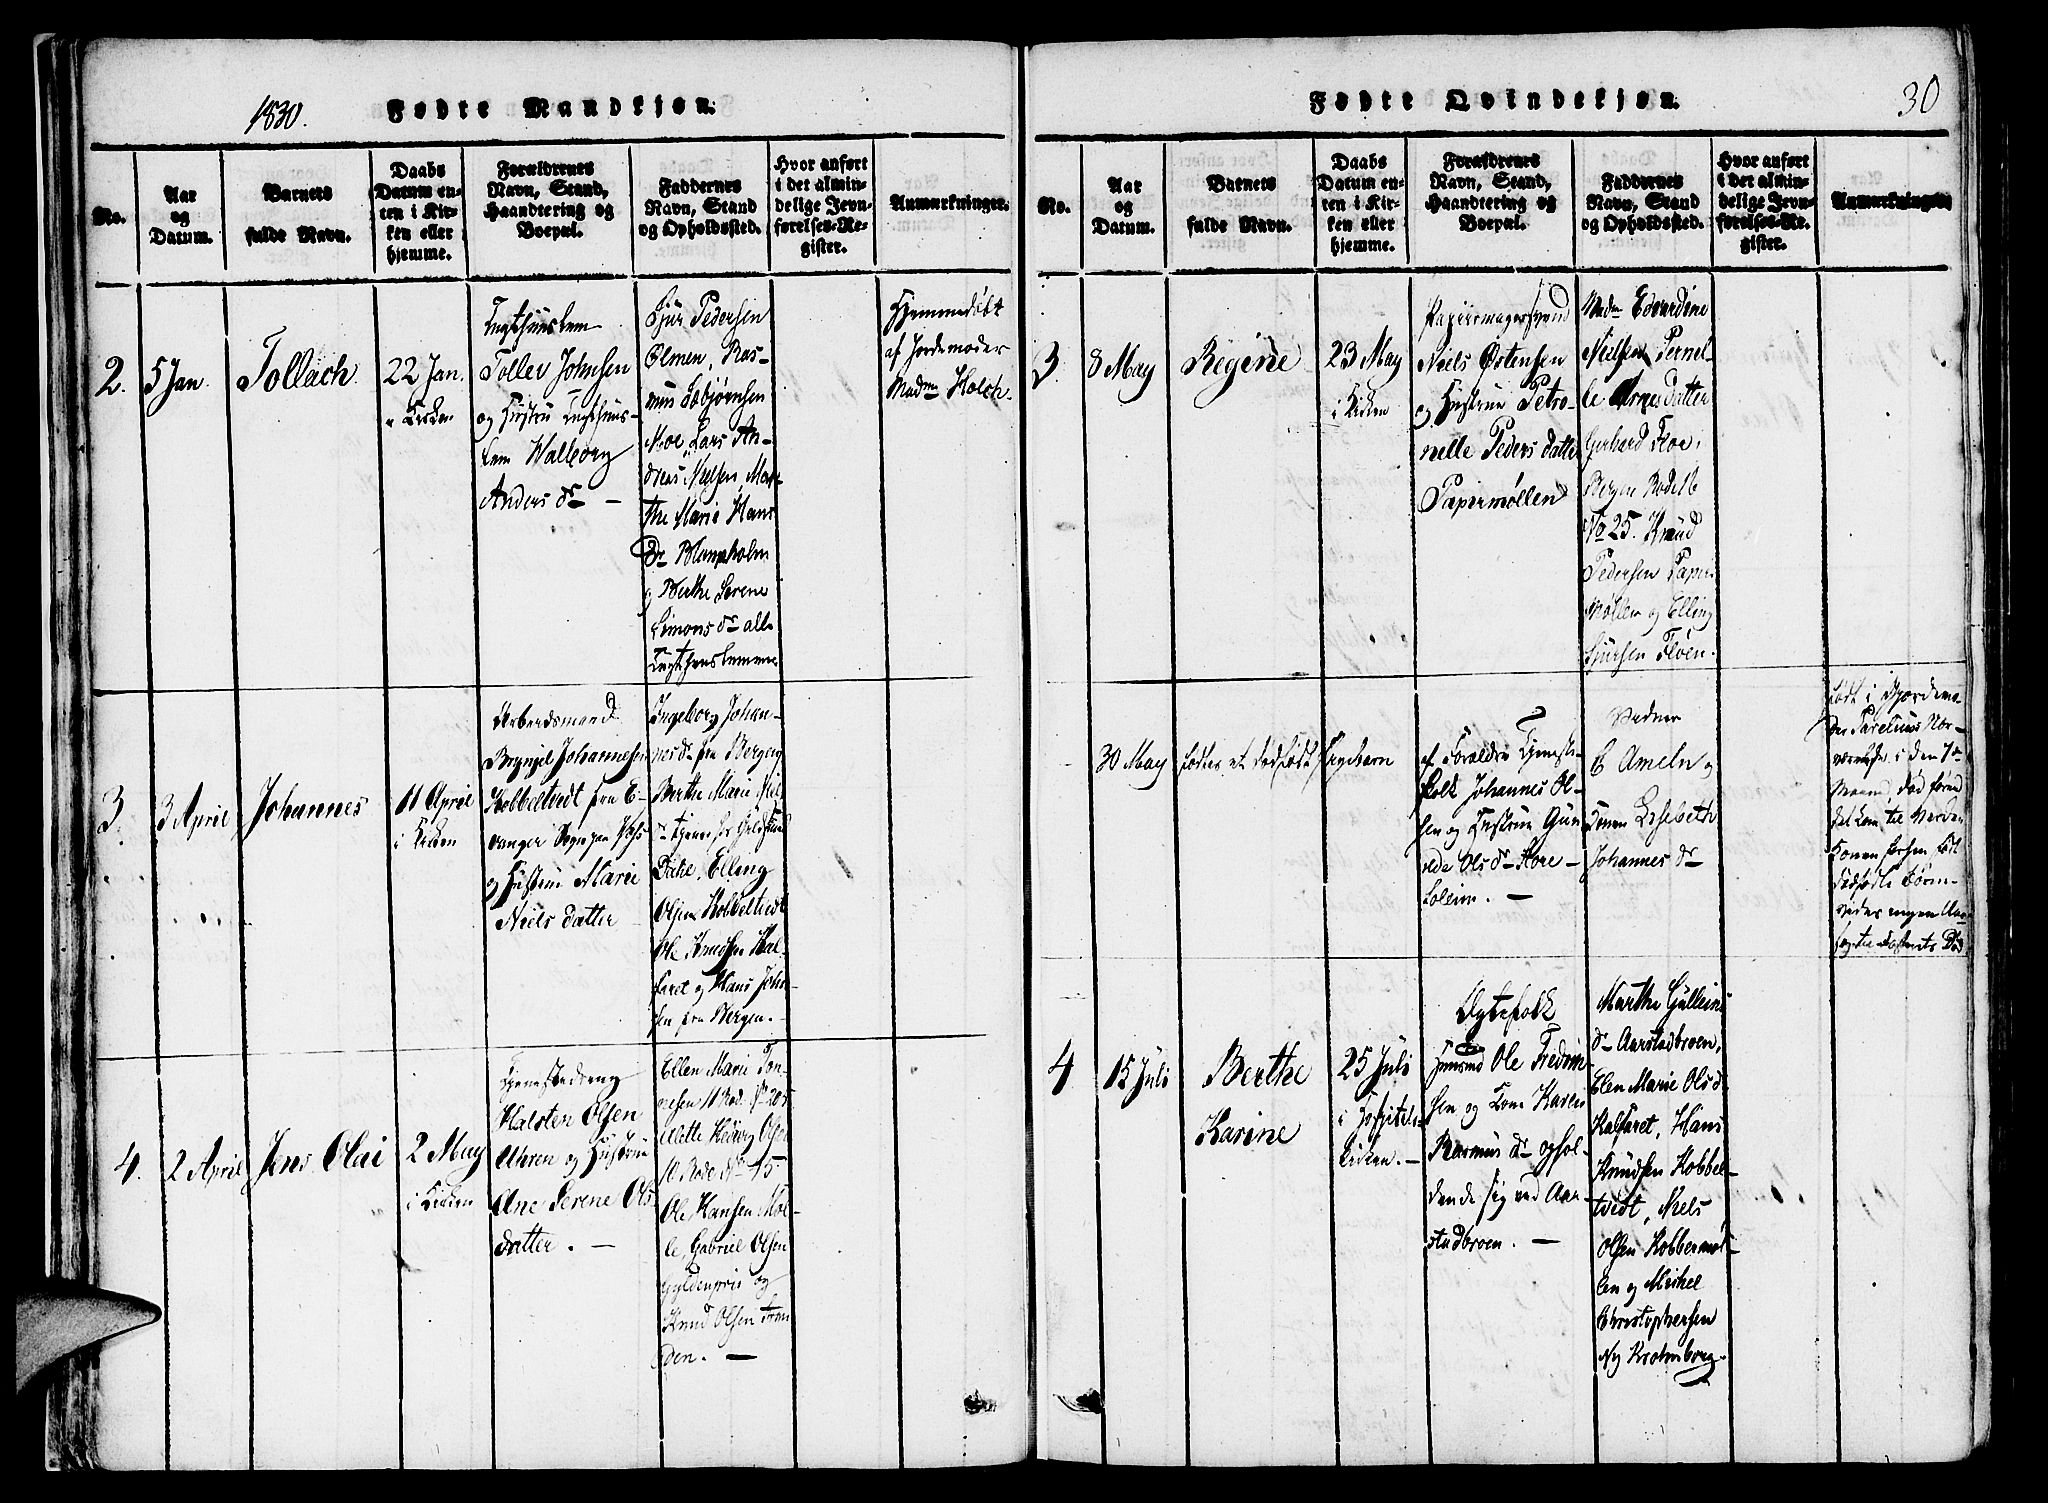 1830.
Fødte Mandkjøn.
No.
Aar
og
Datum.
Barnets
fulde Navn.
Daabs
Datum en-
ten i Kir-
ken eller
hjemme.
Forældrenes
Navn, Stand,
Haandtering og
Boepæl.
Faddernes
Navn, Stand
og Opholdssted.
Hvor anført
i det almin-
delige Jevn-
førelses-Re-
gister.
Anmærkninger.
2.
5 Jan.
Tollach
22 Jan.
Kirken
Tugthuuslem
Toller Johnsen
og Hustru Tugthuus-
lem Walborg
Anders dr —
Sjur Pedersen
Ølmen, Ras-
mus
Moe, Lars An-
dreas Nielsen, Mar-
the Marie Hans
dr
og Berthe Serene
Simons dr alle
Tugthuuslemmer
Hjemmedøbt
af Jordemoder
Madme Holch.
3.
3 April
Johannes
11 April
i Kirken
Arbeidsmand
Brynjel Johannesen
Kobbeltvedt fra E-
vanger Sogn paa Vos
og Hustru Marie
Niels datter
Ingeborg Johan-
nes dr fra Bergen
Berthe Marie Niel
dr tjener for
Dahl, Elling
Olsen Kobbeltvedt
Ole Knudsen Kal-
faret og Hans John-
sen fra Bergen. -
4.
2 April
Jens Olai
2 May
i Kirken
Tjenestedreng
Halsten Olsen
Uhren og Hustrue
Ane Serene Ols
datter. —
Ellen Marie Ton-
nesen 11 Rod. No 205
Alette Hedvig Olsen
10 Rode No 45
Ole Hansen Møl-
le, Gabriel Olsen
Gyldenpris og
Knud Olsen
den. —
Fødte Qvindekjøn.
30
No.
Aar
og
Datum.
Barnets
fulde Navn.
Daabs
Datum en-
ten i Kir-
ken eller
hjemme.
Forældrenes
Navn, Stand,
Haandtering og
Boepæl.
Faddernes
Navn, Stand
og Opholdssted.
Hvor anført
i det almin-
delige Jevn-
førelses-Re-
gister.
Anmærkninger.
3.
8 May
Regine
23 May
i Kirken
Papiirmagersvend
Niels Østensen
og Hustrue Petro-
nelle Peders datter
Papirmøllen
Madme Edvardine
Nielsen, Pernel-
le Arnesdatter
Gerhard Floe,
Bergen Rodelb
No 25. Knud
Pedersen Papir
Møllen og Elling
Sjursen Fløen.
30 May
fødtes et dødfødt Pigebarn
af Forældre Tjeneste-
folk Johannes Ol-
sen og Hustrue Gun
Ols dr Store-
Loleim. —
Vidner
C Ameln og
Konen Lisebeth
Johannes dr
født i Gjordemo-
der Nær-
værelse i den 7de
Maaned, død førend
det kom til Verden
Konen forhen født
dødfødte Børn-
vides ingen Aar-
sag til Fosterets Død
4
15 Juli
Berthe
Karine
25 Juli
i Hospitels-
kirken. -
Ægtefolk
Huusmd Ole Fredrik-
sen og Kone Karen
Rasmus dr ophol-
dende sig ved Aar-
stadbroen. —
Marthe Gulleins
dr Aarstadbroen,
Elen Marie Ols dr
Kalfaret, Hans
Knudsen Kobbel-
tvedt, Niels
Olsen Kobbermøl-
len og Michel
Christophersen
Ny Krohnborg.